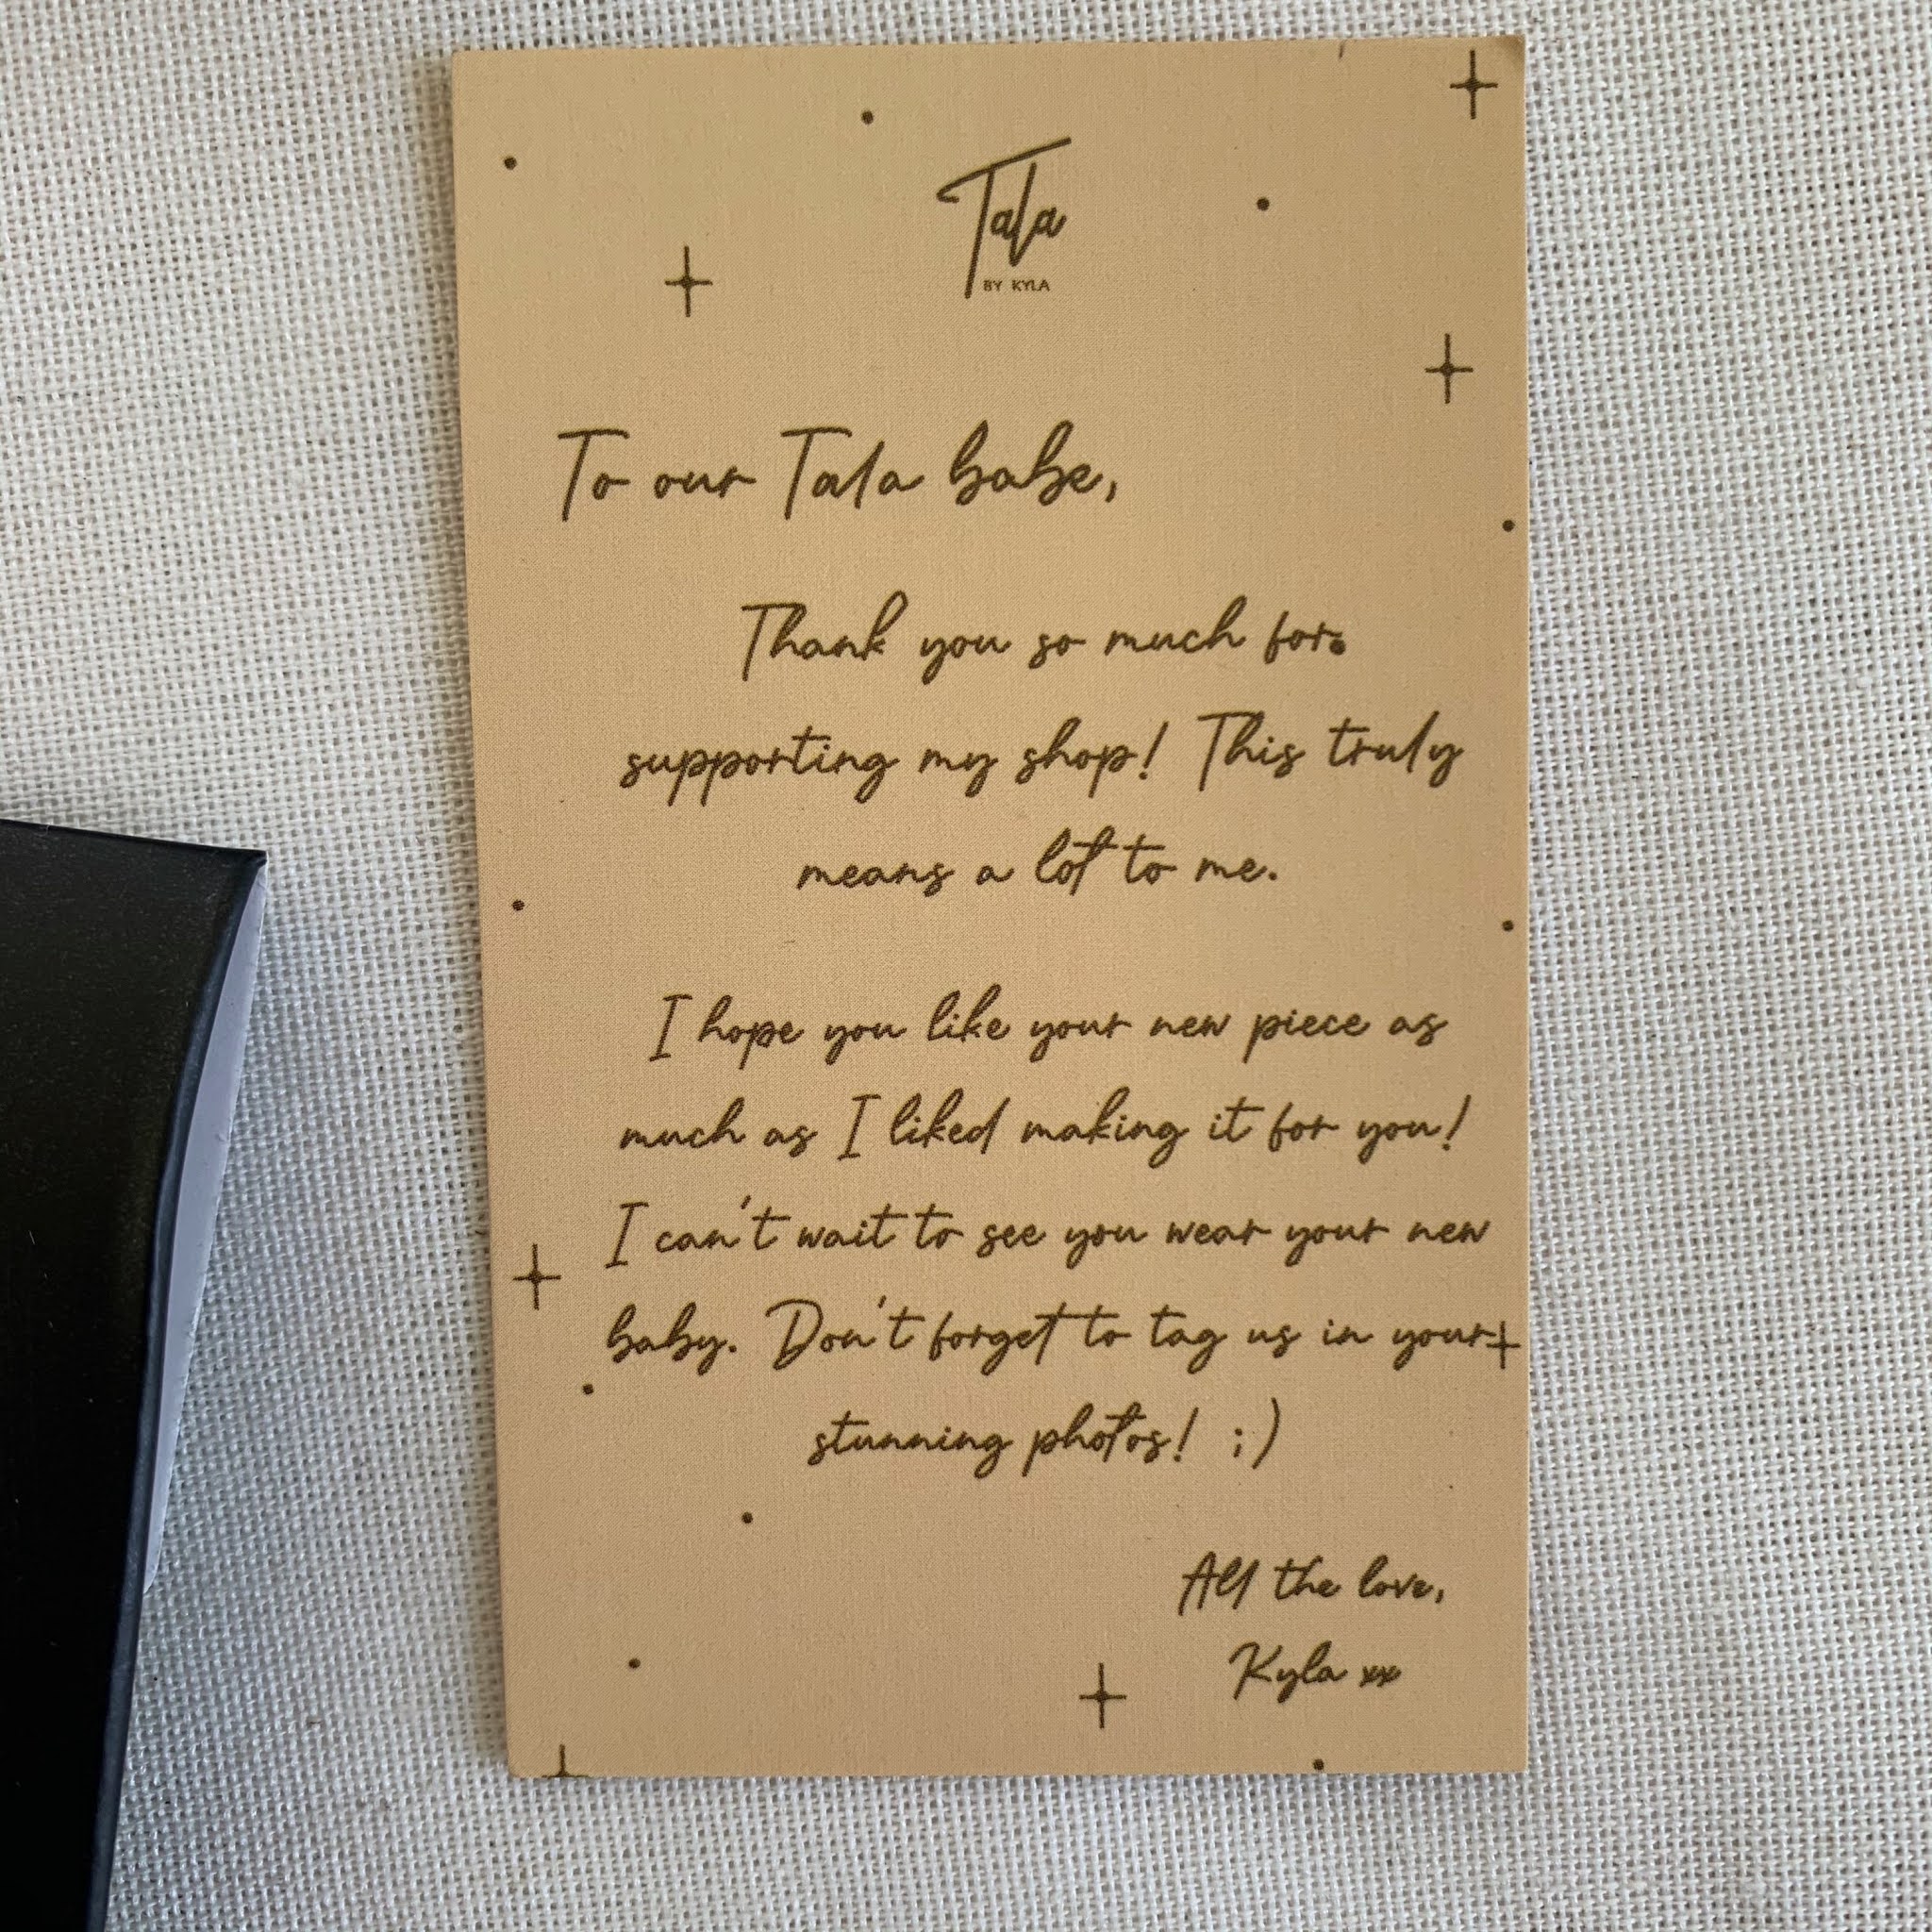 Tala
BY KYLA
To our Tala babe,
Thank you so much for
supporting my shop! This truly
means a lot to me.
I hope you like your new piece as
much as I liked making it for you!
I can't wait to see you wear your new
baby. Don't forget to tag us in your
stunning photos! ;)
All the love,
Kyla xx